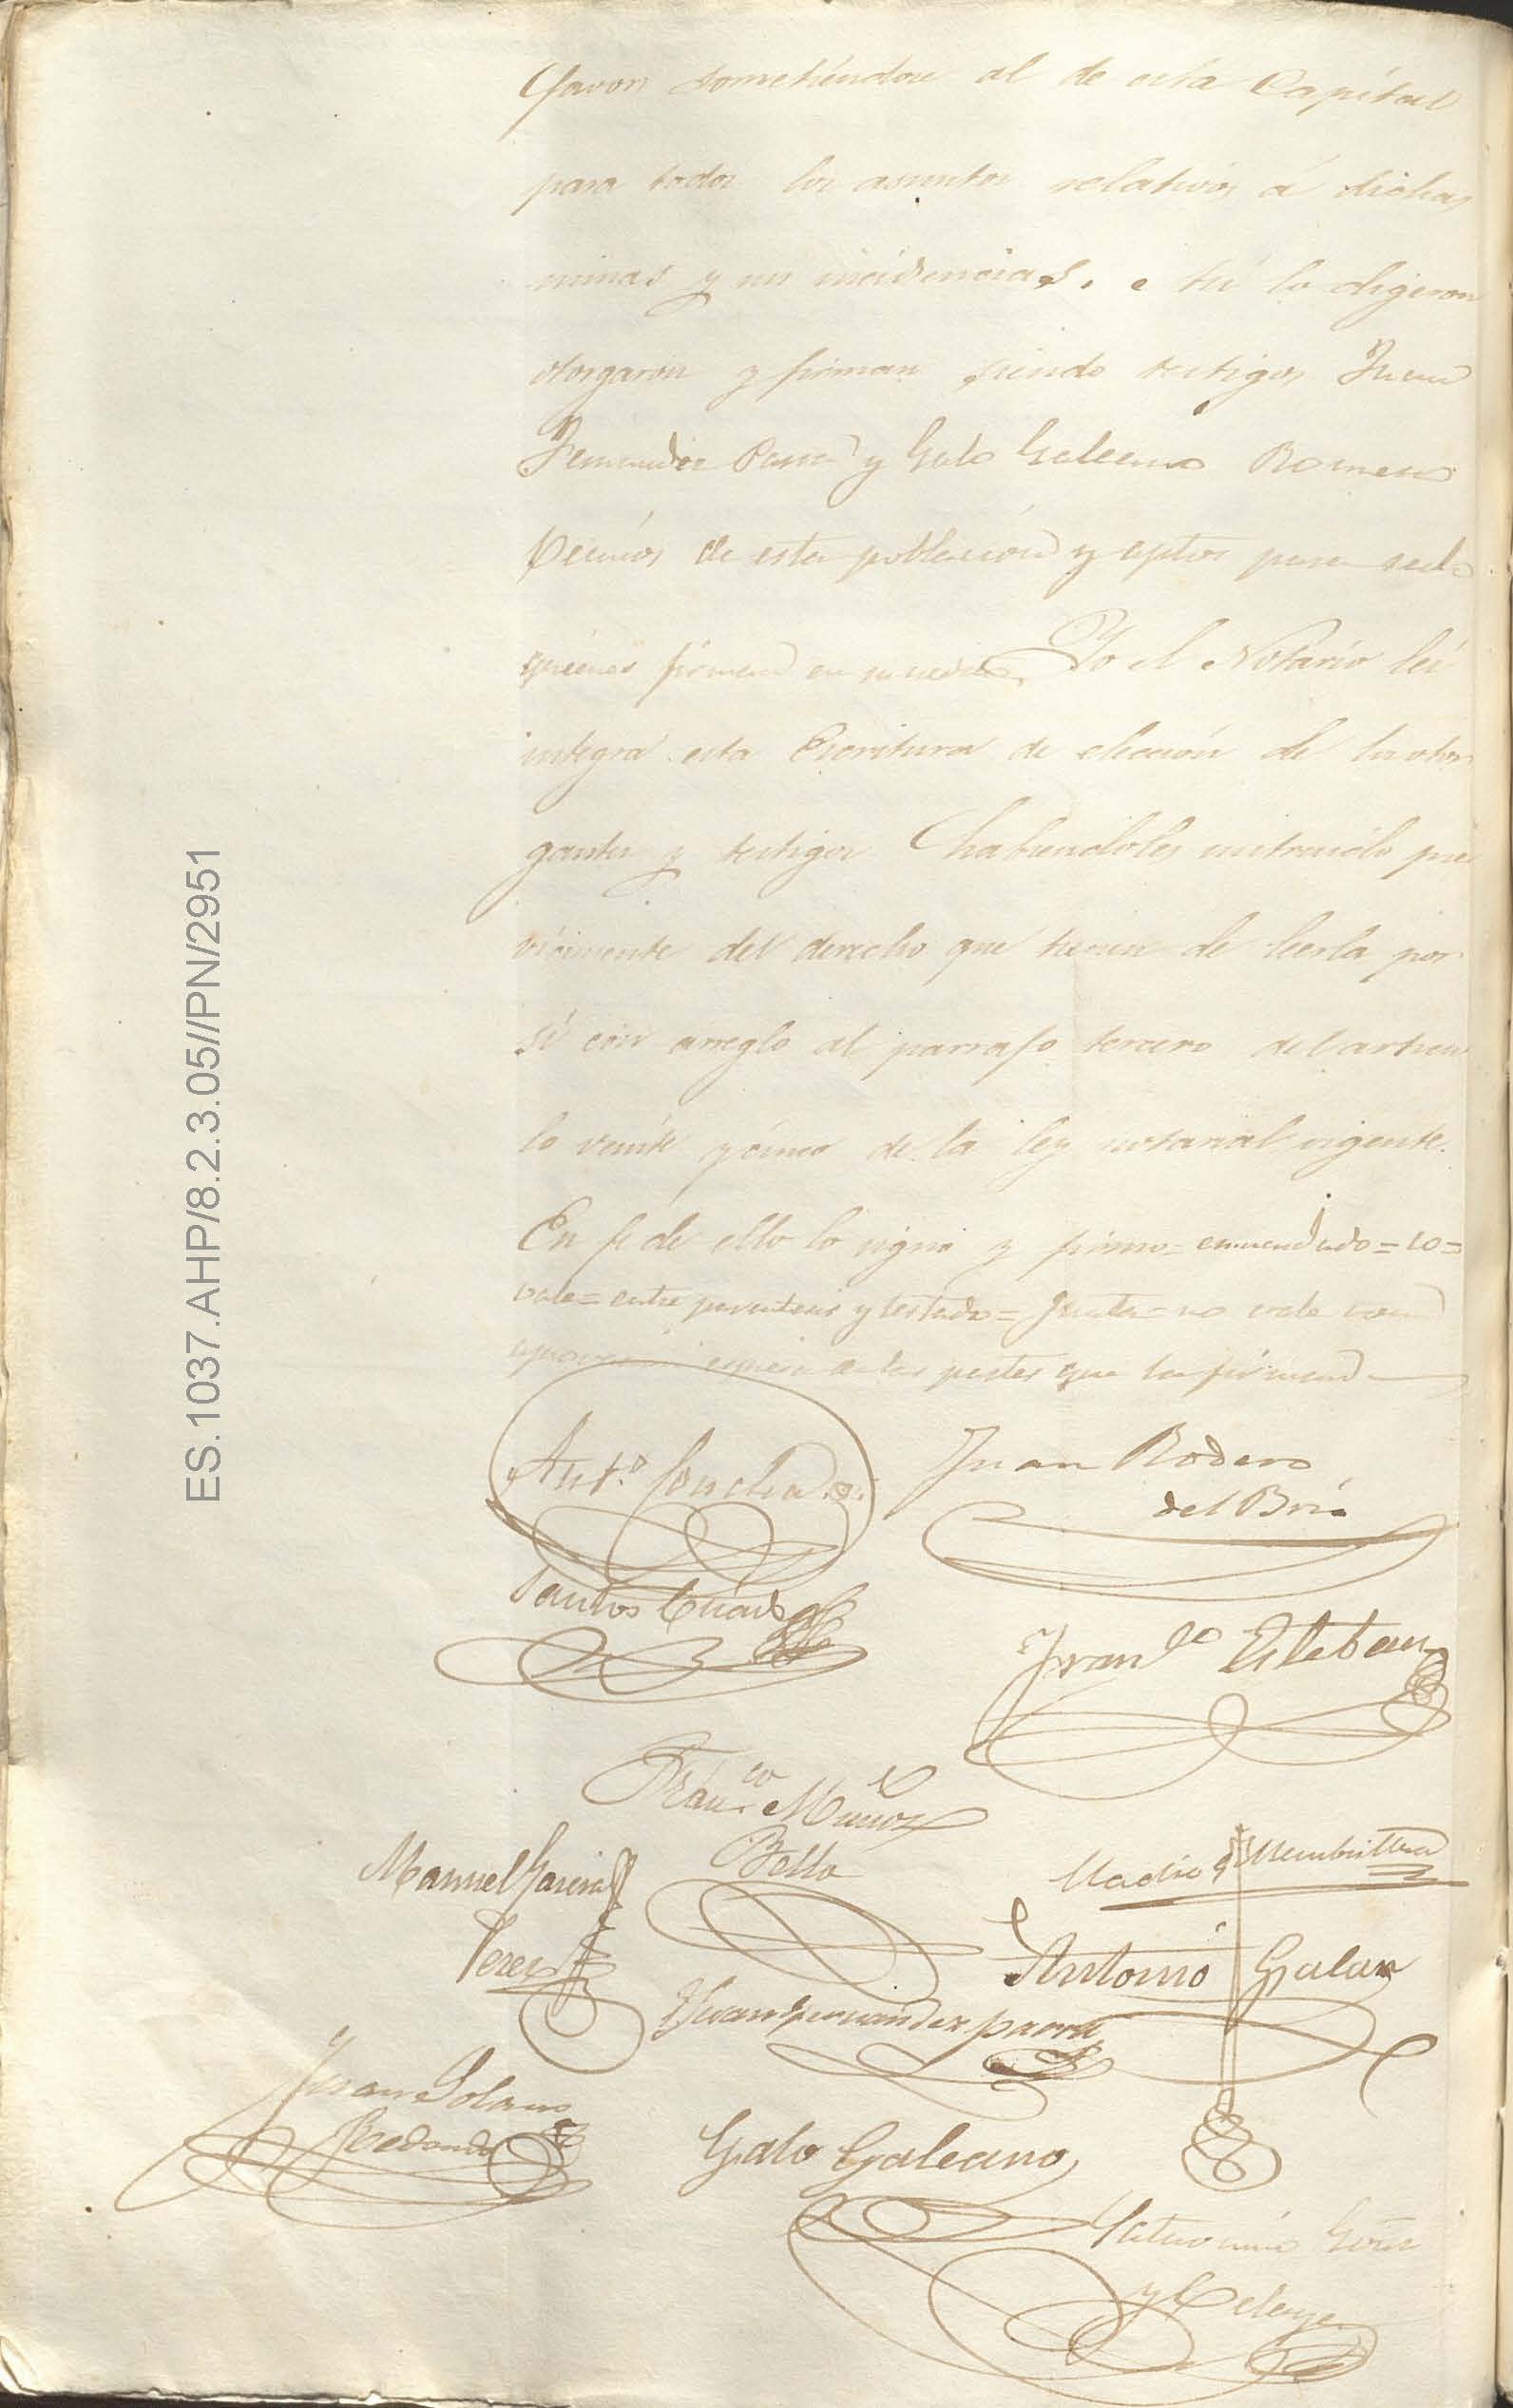 favor sometiéndose al de esta Capital
para todos los asuntos relativos á dichas
minas y sus incidencias. Así lo digeron
otorgaron y firman siendo testigos Juan
Fernandez Parra y Galo Galeano Romero
Vecinos de esta población y aptos para serlo
quienes firman
Yo el Notario leí
integra esta Escritura de elección de los otor
gantes y testigos habiendoles instruido pre
viamente del derecho que tienen de leerla por
sí con arreglo al parrafo tercero del articu
lo veinte y cinco de la ley notarial vigente.
En fe de ello lo signo y firmo= enmendado = co =
vale = entre parentesis y testado = Junta = no vale con
aprovacion espresa de las partes que la firman
Antº Concha
Juan Rodero
del Brío
Santos Criado
Franco Esteban
Franco Muñoz
Bello
Manuel Garcia
Perez
Membrillera
Antonio Galan
Juan Fernandez Parra
Juan Solano
Redondo
Galo Galeano
ES.1037.AHP/8.2.3.05//PN/2951